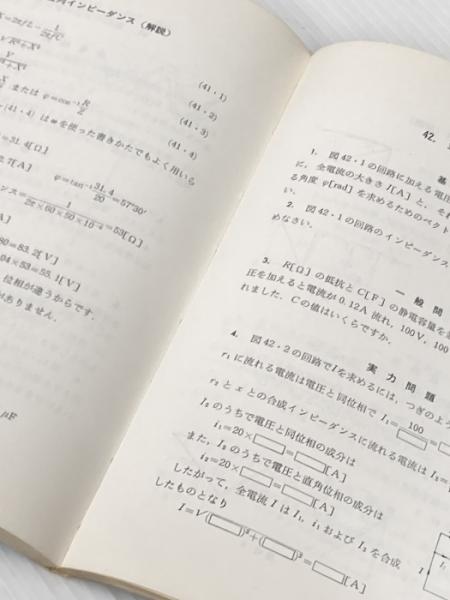 列インピーダンス (解説)
X=2πfL-1/2πfC
√R²+X²
V/√R²+X² (41・1)
または φ=cos⁻¹R/Z (41・2)
(41・3)
(41・4)
(41・4) はωを使った書きかたでもよく用いら
31.4[Ω]
.7[A]
φ=tan⁻¹31.4/20=57°30′
ンス=1/2π×60×50×10⁻⁶=53[Ω]
80=83.2[V]
04×53=55.1[V]
位相が違うからです.
がありません.
μF
42.
基
1. 図 42・1 の回路に加える電圧
に, 全電流の大きさ I[A] と, それ
る角度 φ[rad] を求めるためのベクト
い.
2. 図 42・1 の回路のインピーダンス
めなさい.
一般問
3. R[Ω] の抵抗と C[F] の静電容量を
圧を加えると電流が 0.12A 流れ, 100V, 100
れました. C の値はいくらですか.
実力問題
4. 図 42・2 の回路で I を求めるには, つぎのよう
r₁ に流れる電流は電圧と同位相で I₁=100/□=
r₂ と x との合成インピーダンスに流れる電流は I₂=
I₂ のうちで電圧と同位相の成分は
i₁=20×□=□[A]
また, I₂ のうちで電圧と直角位相の成分は
i₂=20×□=□[A]
したがって, 全電流 I は I₁, i₁ および I₂ を合成
したものとなり
I=√(□)²+(□)²=□[A]
I